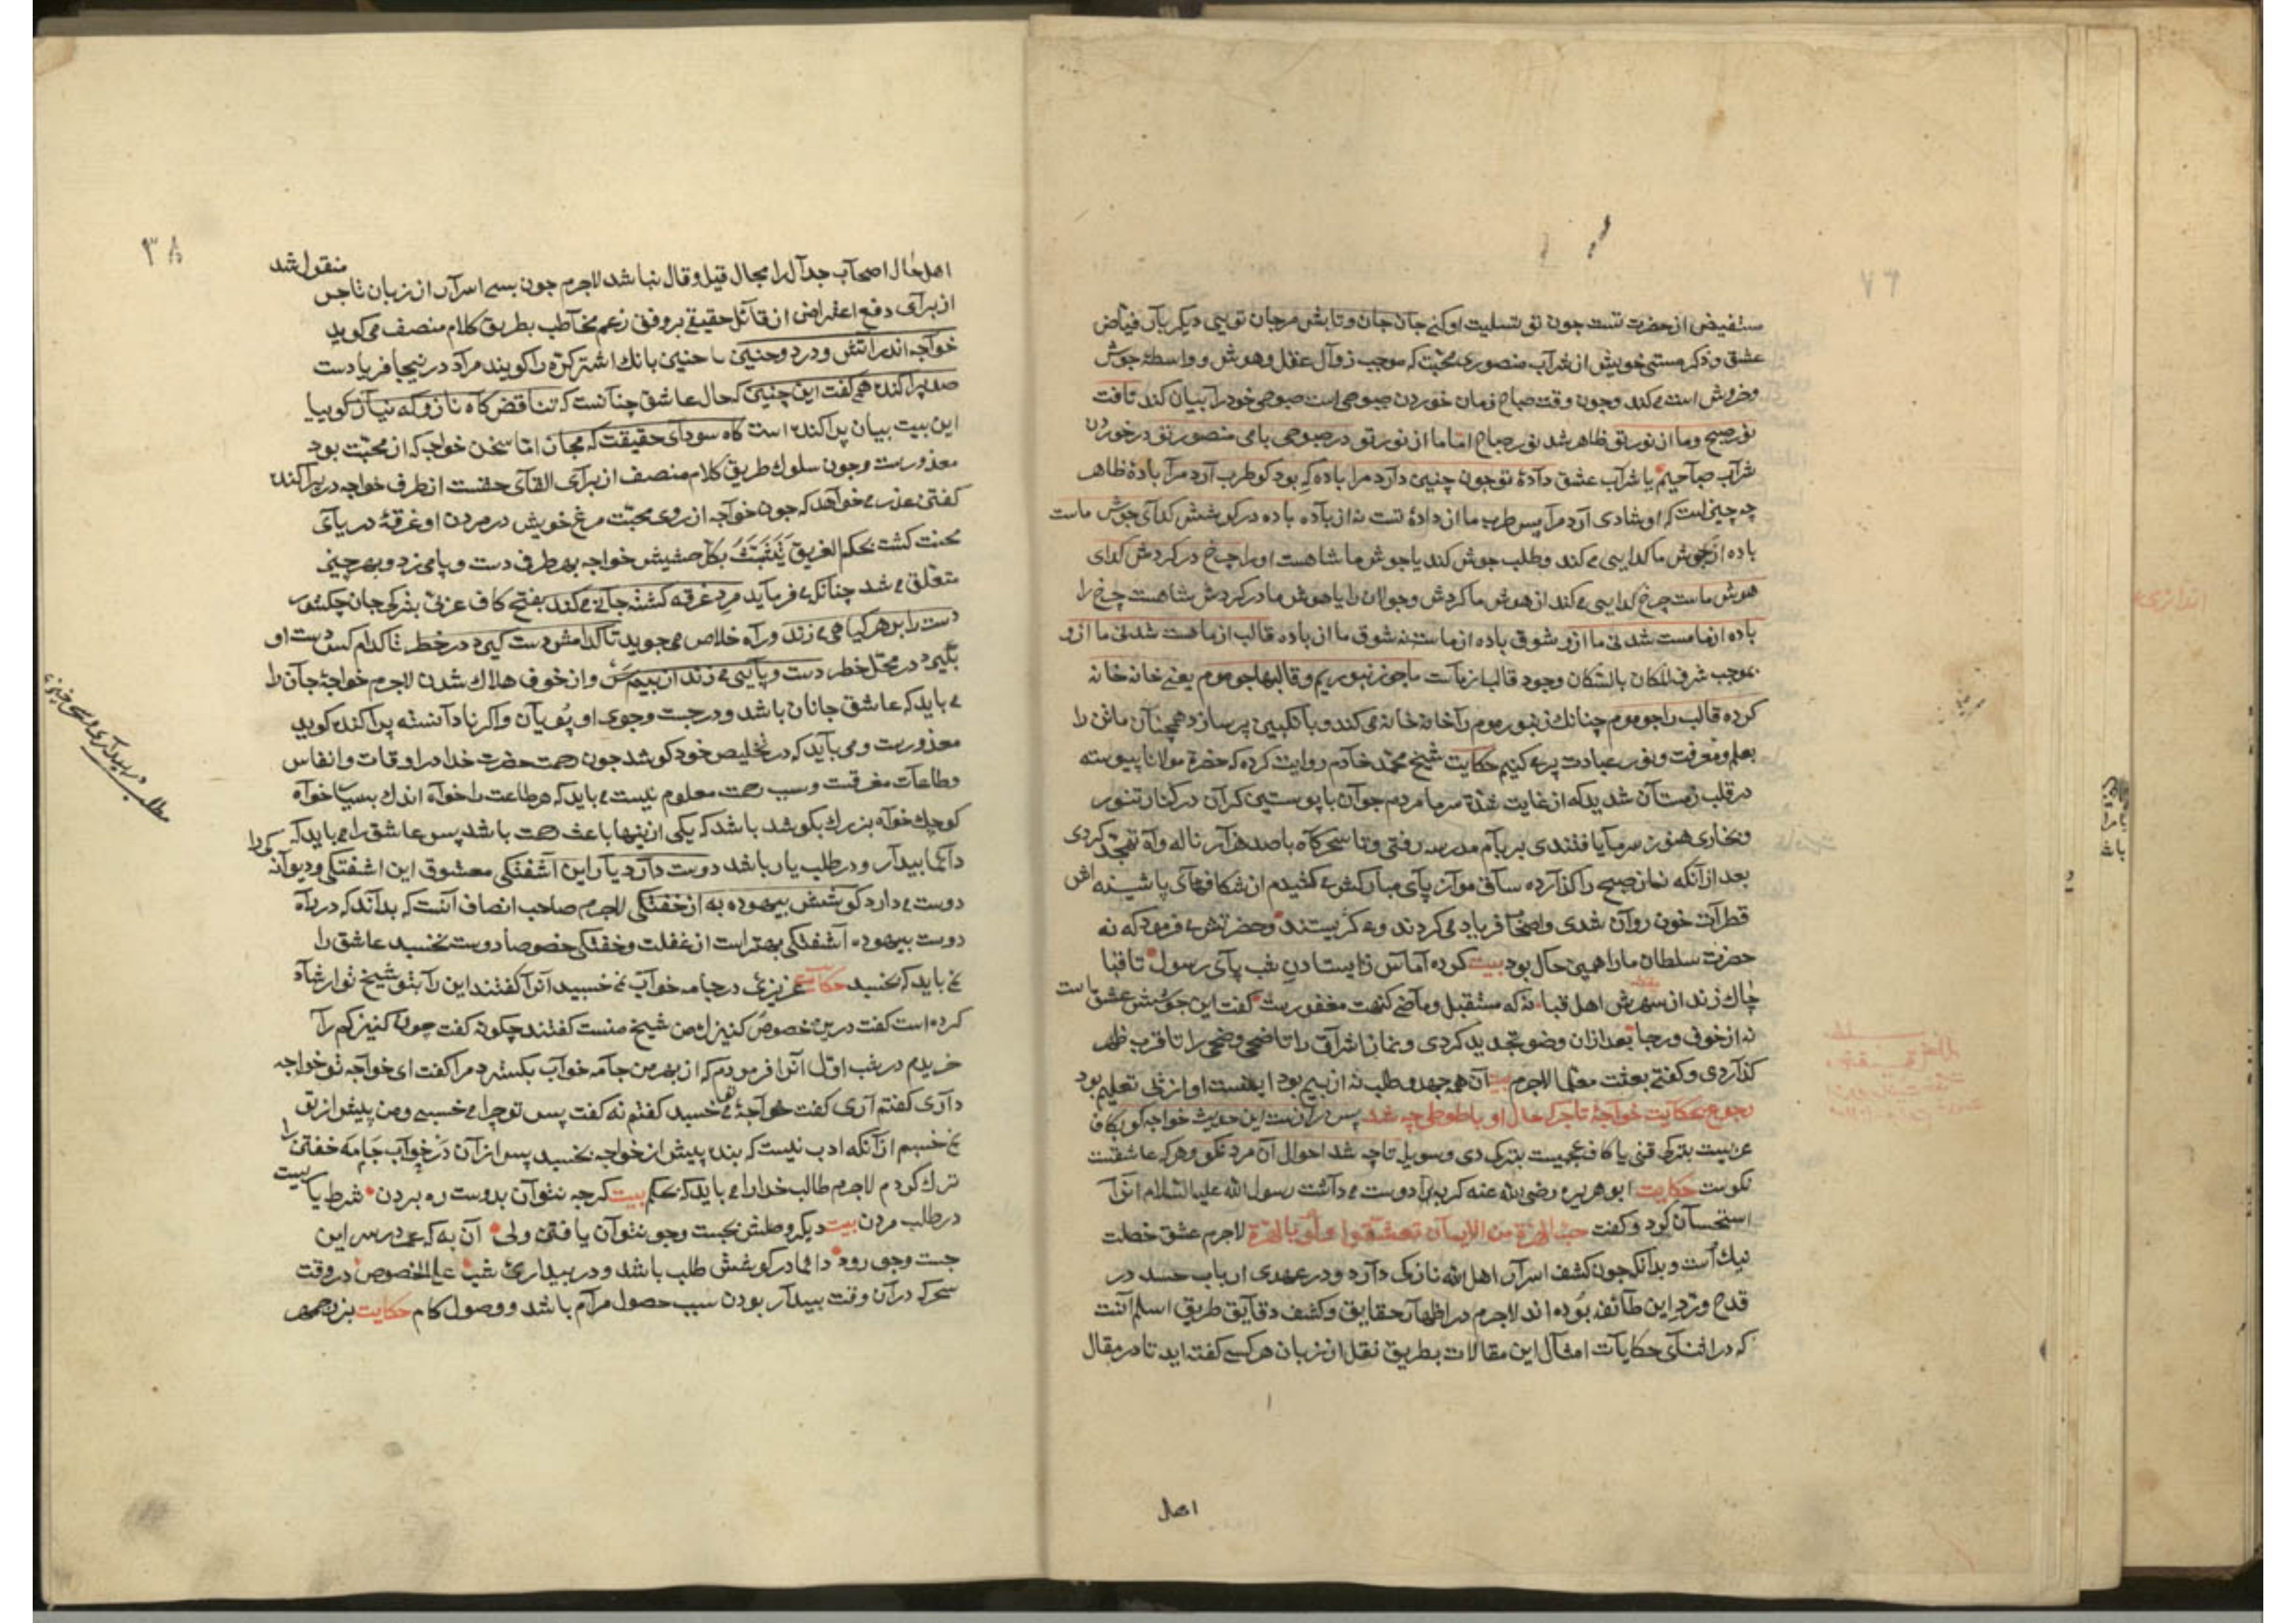 ۷۶
مستفیض از حضرت تست چون تو تسلیت او کنی جان جان و تابش مرجان تویی دیگر بیان فیاض
عشق و ذکر مستی خویش از شراب منصوری محبّت که موجب زوال عقل و هوش و واسطهٔ جوش
و خروش است می کند و چون وقت صباح زمان خوردن صبوحی است صبوحی خود را بیان کند تافت
نور صبح و ما از نور تو ظاهر شد نور صباح اما ما از نور تو در صبوحی با می منصور تو در خوردن
شراب صباحیم یا شراب عشق دادهٔ تو چون چنین دارد مرا باده که بود کو طرب آرد مرا بادهٔ ظاهر
چه چیز است که او شادی آرد مرا پس طرب ما از دادهٔ تست نه از باده باده در کوشش کدای جوش ماست
باده از جوش ما کدایی می کند و طلب جوش کند یا جوش ما شاهست او را چرخ در کردش کدای
هوش ماست چرخ کدایی می کند از هوش ما کردش و جولان را یا هوش ما در کردش شاهست چرخ را
باده از ما مست شد نی ما ازو شوق باده از ماست نه شوق ما از باده قالب از ما هست شد نی ما ازو
بموجب شرف المکان بالمکان وجود قالب از ماست ما چو زنبوریم و قالبها چو موم یعنی خانه خانه
کرده قالب را چو موم چنانک زنبور موم را خانه خانه می کند و با انگبین پر سازد همچنان ما تن را
بعلم و معرفت و نور عبادت پر می کنیم حکایت شیخ محمد خادم روایت کرده که حضرة مولانا پیوسته
در قلب زمستان شدید که از غایت شدّة سرما مردم جوان با پوستین کران در کنار تنور
و بخاری هنوز سرما یافتندی بر بام مدرسه رفتی و تا سحرکاه با صد هزار ناله و آه تهجّد کردی
بعد از آنکه نماز صبح را کذارده ساق موزه از پای مبارکش می کشیدم از شکافهای پاشنه اش
قطرات خون روان شدی و اصحاب فریاد می کردند و می کریستند و حضرتش می فرمود که نه
حضرت سلطان ما را همین حال بود بیت کرده آماس ز ایستادن شب پای رسول تا قبا
چاک زدند از سهرش اهل قبا نه که مستقبل و ماضی کنهت مغفورست گفت این جوشش عشق است
نه از خوف و رجا بعد از آن وضو تجدید کردی و نماز اشراق را تا ضحی وضحی را تا قرب ظهر
کذاردی و کفتی بعثت معلّما لاجرم بیت آن همه جهد و طلب نه از بیم بود او از پی تعلیم بود
رجوع بحکایت خواجهٔ تاجر که حال او با طوطی چه شد پس درازست این حدیث خواجه کو بکاف
عربیست بترکی قنی یا کاف عجمیست بترکی دی و سویله تا چه شد احوال آن مرد نکو و هر که عاشقست
نکوست حکایت ابو هریره رضی الله عنه کربه را دوست می داشت رسول الله علیه السّلام آنرا
استحسان کرد و کفت حبّ الهرّة من الایمان تعشّقوا ولو بالهرّة لاجرم عشق خصلت
نیک است و بدانکه چون کشف اسرار اهل الله نازکی دارد و در عهدی ارباب حسد در
قدح و ردّ این طائفه بوده اند لاجرم در اظهار حقایق و کشف دقایق طریق اسلم آنست
که در اثنای حکایات امثال این مقالات بطریق نقل از زبان هر کسی کفته اید تا در مقال
اهل
۳۸
اهل حال اصحاب جدال را مجال قیل و قال نباشد لاجرم چون بسی اسرار از زبان تاجر منقول شد
از برای دفع اعتراض از قائل حقیقی بر وفق زعم مخاطب بطریق کلام منصف می کوید
خواجه اندر آتش و درد و حنین با حنین بانک اشتر کرّه را کویند مراد در اینجا فریادست
صد پراکنده همی کفت این چنین که حال عاشق چنانست که تناقض کاه ناز و که نیاز کوییا
این بیت بیان پراکنده است کاه سودای حقیقت که مجاز اما سخن خواجه که از محبّت بود
معذورست و چون سلوک طریق کلام منصف از برای القای حقست از طرف خواجه در پراکنده
کفتن عذر می خواهد که چون خواجه از روی محبّت مرغ خویش در مردن او غرقهٔ دریای
محنت کشت بحکم الغریق یتشبّث بکل حشیش خواجه بهر طرف دست و پا می زد و بهر چیز
متعلّق می شد چنانکه می فرماید مرد غرقه کشته جانی می کند بفتح کاف عربی بترکی جان چکشور
دست را بر هر کیاهی می زند و راه خلاص می جوید تا کدامش دست کیرد در خطر تا کدام کس دست او
بکیرد در محلّ خطر دست و پایی می زند از بیم سر و از خوف هلاک شدن لاجرم خواجهٔ جان را
می باید که عاشق جانان باشد و در جست و جوی او پویان و اکر نادانسته پراکنده کوید
معذورست و می باید که در تخلیص خود کوشد چون رحمت حضرت خدا در اوقات و انفاس
و طاعات متفرقست و سبب رحمت معلوم نیست می باید که در طاعت را خواه اندک بسیار خواه
کوچک خواه بزرک بکوشد باشد که یکی از اینها باعث رحمت باشد پس عاشق را می باید که
دائما بیدار و در طلب یار باشد دوست دارد یار این آشفتکی معشوق این اشفتکی و دیوانه کی را
دوست می دارد کوشش بیهوده به از خفتکی لاجرم صاحب انصاف آنست که بداند که در راه
دوست بیهوده آشفتکی بهتر است از غفلت و خفتکی خصوصا دوست نخسبد عاشق را
می باید که نخسبد حکایت عزیزی در جامه خواب نمی خسبید آنرا کفتند این را بتو شیخ تو ارشاد
کرده است کفت درین خصوص کنیزک من شیخ منست کفتند چکونه کفت چون کنیزکم را
خریدم در شب اوّل آنرا فرمودم که از بهر من جامه خواب بکسترد مرا کفت ای خواجه تو خواجه
داری کفتم آری کفت خواجهٔ تو می خسبد کفتم نه کفت پس تو چرا می خسبی و من پیش از تو
نمی خسبم از آنکه ادب نیست که بنده پیش از خواجه نخسبد پس از آن در خواب جامه خفتن را
ترک کردم لاجرم طالب خدا را می باید که بحکم بیت کرچه نتوان بدوست ره بردن شرط یاریست
در طلب مردن بیت دیکر وصلش بجست و جو نتوان یافتن ولی آن به که عمر در سر این
جست و جو رود دائما در کوشش طلب باشد و در بیداری شب علی الخصوص در وقت
سحر که در آن وقت بیدار بودن سبب حصول مرام باشد و وصول کام حکایت بزرجمهر